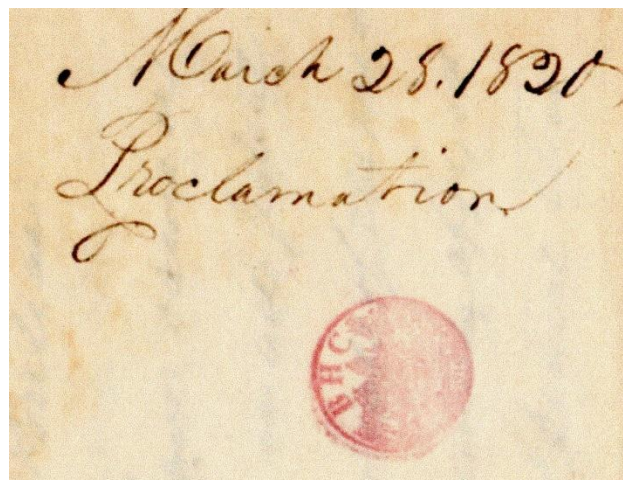 March 28. 1820
Proclamation
BHC